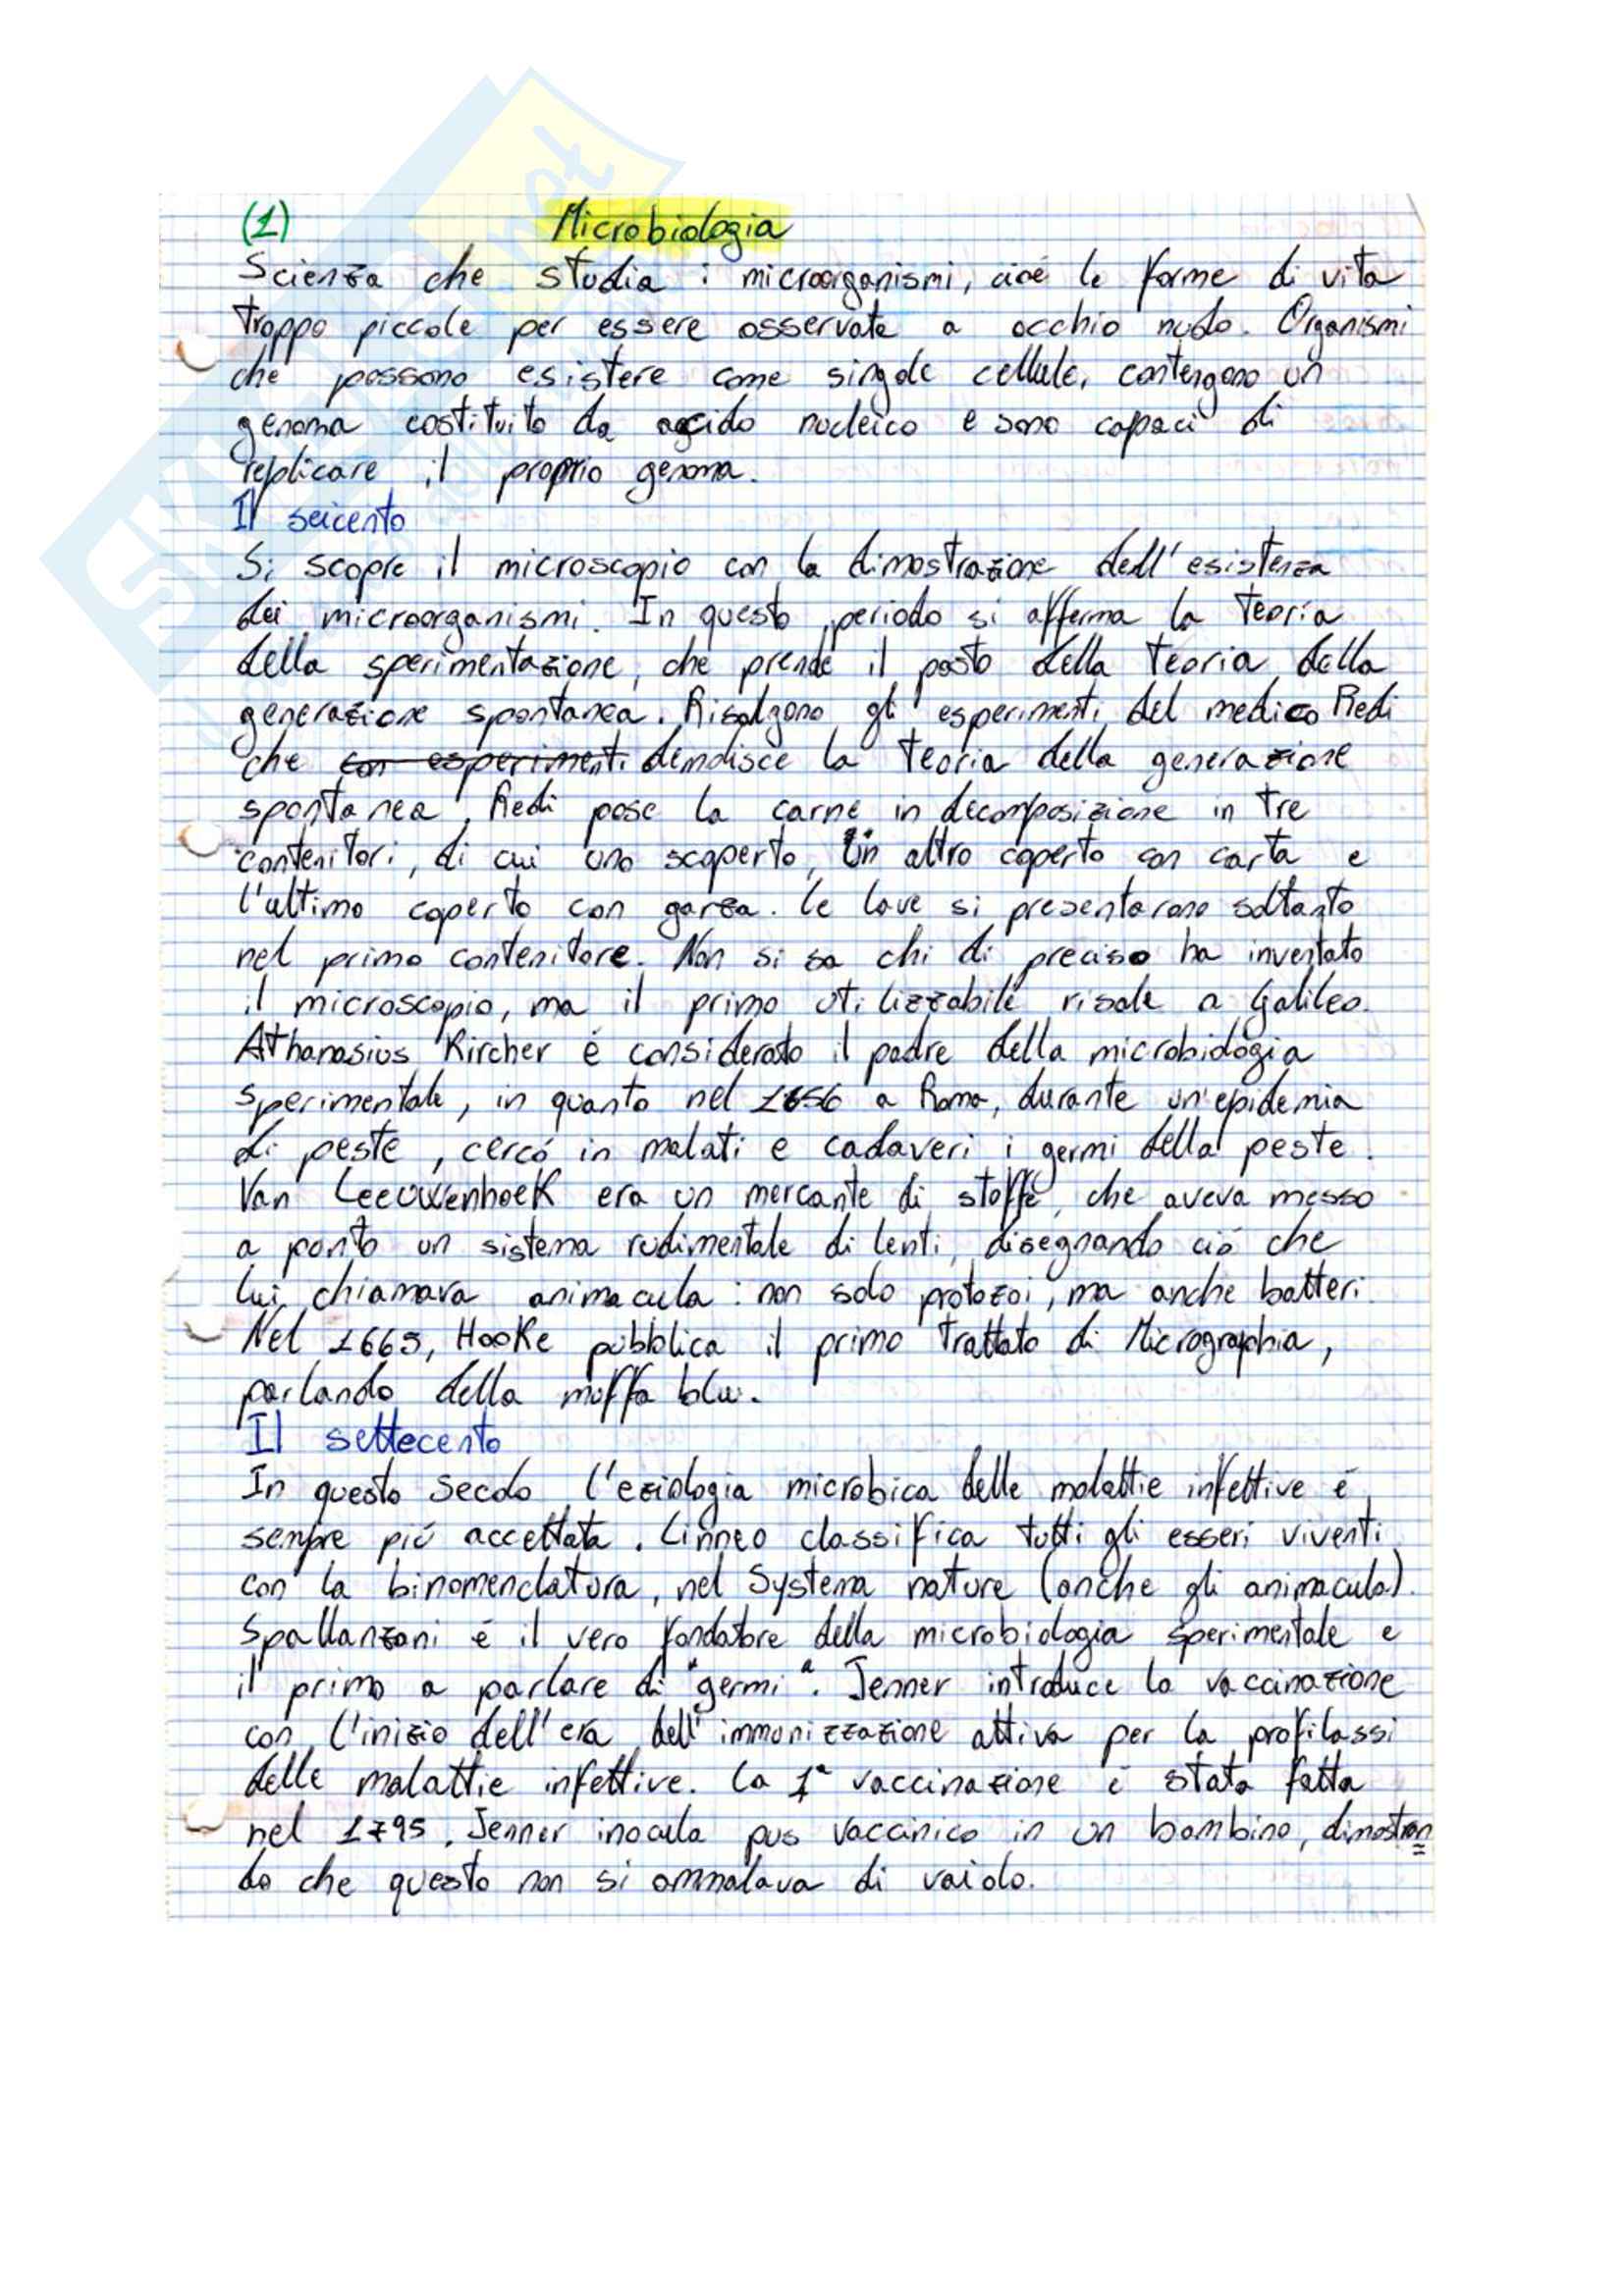 (1) Microbiologia
Scienza che studia i microorganismi, cioé le forme di vita
troppo piccole per essere osservate a occhio nudo. Organismi
che possono esistere come singole cellule, contengono un
genoma costituito da acido nucleico e sono capaci di
replicare il proprio genoma.
Il seicento
Si scopre il microscopio con la dimostrazione dell'esistenza
dei microorganismi. In questo periodo si afferma la teoria
della sperimentazione, che prende il posto della teoria della
generazione spontanea. Risalgono gli esperimenti del medico Redi
che con esperimenti demolisce la teoria della generazione
spontanea. Redi pose la carne in decomposizione in tre
contenitori, di cui uno scoperto, un altro coperto con carta e
l'ultimo coperto con garza. Le lave si presentarono soltanto
nel primo contenitore. Non si sa chi di preciso ha inventato
il microscopio, ma il primo utilizzabile risale a Galileo.
Athanasius Kircher é considerato il padre della microbiologia
sperimentale, in quanto nel 1656 a Roma, durante un'epidemia
di peste, cercó in malati e cadaveri i germi della peste.
Van Leeuwenhoek era un mercante di stoffe, che aveva messo
a punto un sistema rudimentale di lenti, disegnando ció che
lui chiamava animacula: non solo protozoi, ma anche batteri.
Nel 1665, Hooke pubblica il primo trattato di Micrographia,
parlando della muffa blu.
Il settecento
In questo secolo l'eziologia microbica delle malattie infettive é
sempre piú accettata. Linneo classifica tutti gli esseri viventi
con la binomenclatura, nel Systema nature (anche gli animacula).
Spallanzani é il vero fondatore della microbiologia sperimentale e
il primo a parlare di "germi". Jenner introduce la vaccinazione
con l'inizio dell'era dell'immunizzazione attiva per la profilassi
delle malattie infettive. La 1ª vaccinazione é stata fatta
nel 1795. Jenner inocula pus vaccinico in un bambino, dimostran=
do che questo non si ammalava di vaiolo.